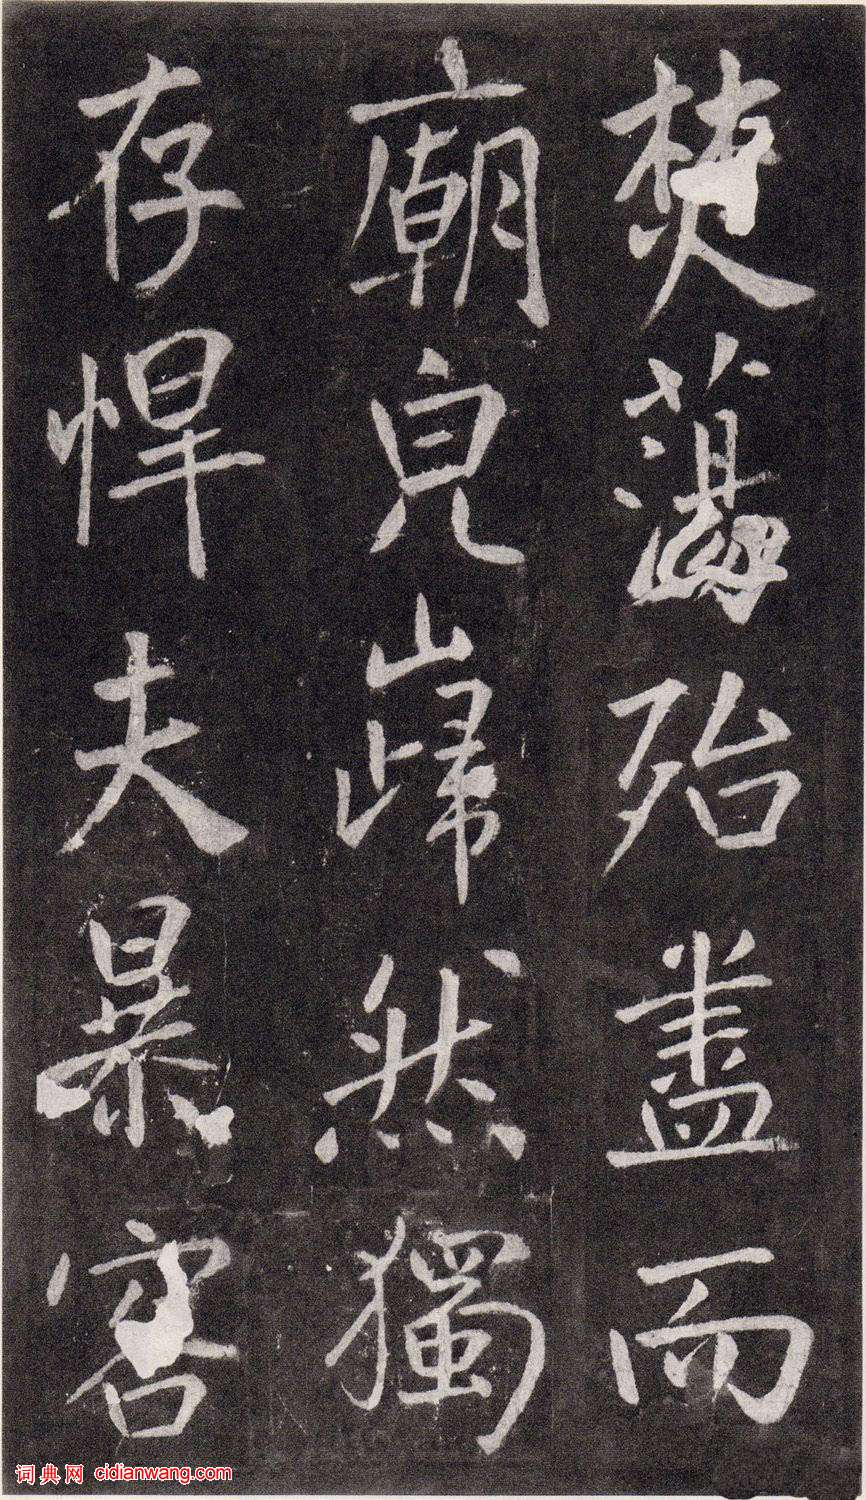 焚蕩殆盡而
廟皃巋然獨
存悍夫暴客
词典网 cidianwang.com